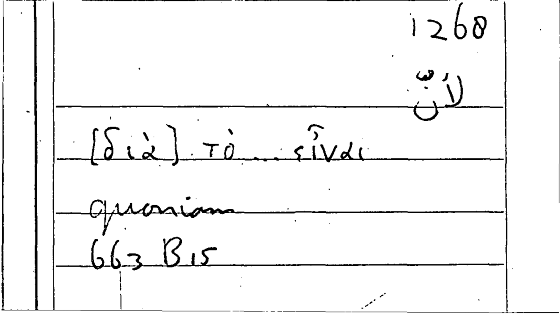 1268
لأنّ
[διὰ] τὸ... εἶναι
quoniam
663 B15